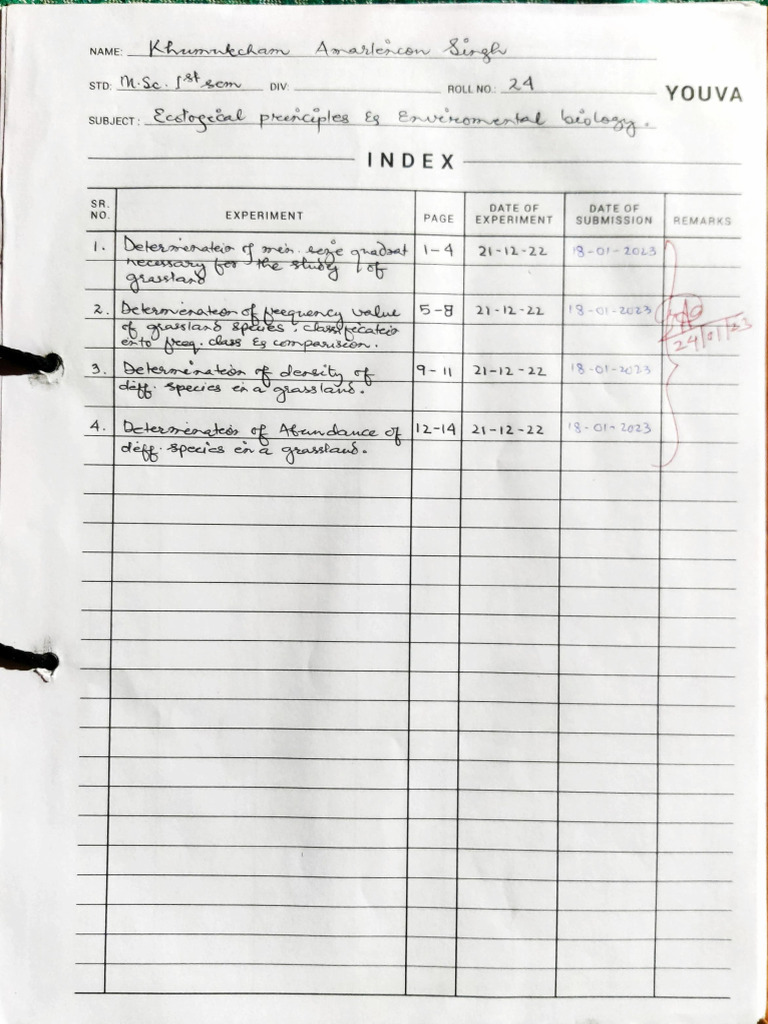 NAME: Khumukcham Amarlencon Singh
STD: M.Sc. 1st sem DIV: ROLL NO.: 24
YOUVA
SUBJECT: Ecological principles & Enviromental biology.
INDEX
SR. NO. EXPERIMENT PAGE DATE OF EXPERIMENT DATE OF SUBMISSION REMARKS
1. Determination of min. size quadrat 1-4 21-12-22 18-01-2023
necessary for the study of
grassland
2. Determination of frequency value 5-8 21-12-22 18-01-2023
of grassland species classification
into freq. class & comparision.
24/01/23
3. Determination of density of 9-11 21-12-22 18-01-2023
diff. species in a grassland.
4. Determination of Abundance of 12-14 21-12-22 18-01-2023
diff. species in a grassland.